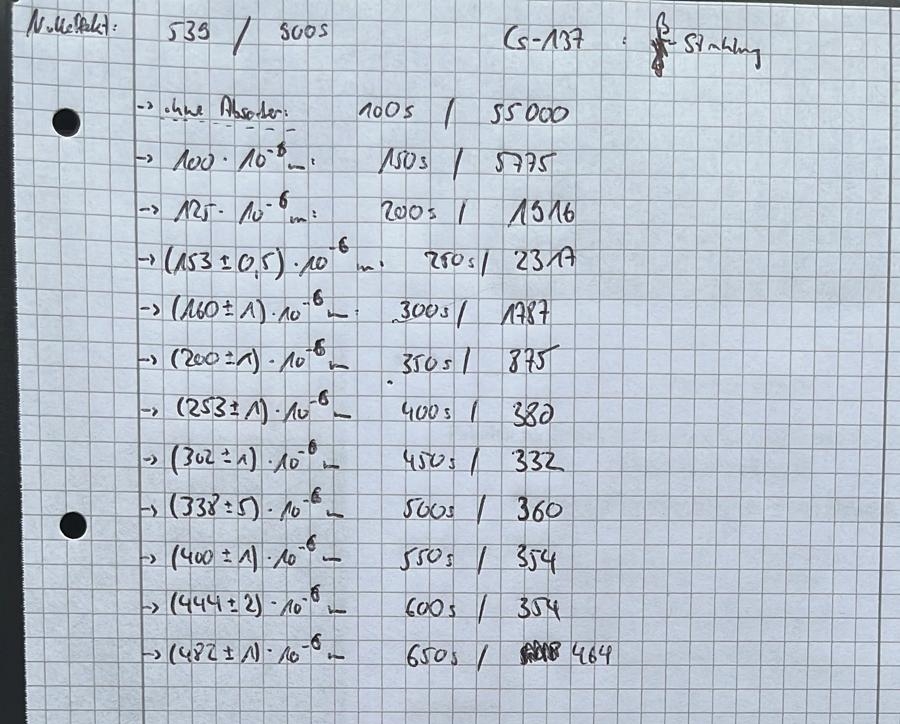 Nulleffekt: 539 / 900s Cs-137 : β - Strahlung
-> ohne Absorber: 100s / 55000
-> 100 · 10^-6 m: 150s / 5775
-> 125 · 10^-6 m: 200s / 1916
-> (153 ± 0,5) · 10^-6 m: 250s / 2317
-> (160 ± 1) · 10^-6 m: 300s / 1787
-> (200 ± 1) · 10^-6 m 350s / 875
-> (253 ± 1) · 10^-6 m 400s / 380
-> (302 ± 1) · 10^-6 m 450s / 332
-> (338 ± 5) · 10^-6 m 500s / 360
-> (400 ± 1) · 10^-6 m 550s / 354
-> (444 ± 2) · 10^-6 m 600s / 354
-> (482 ± 1) · 10^-6 m 650s / 464